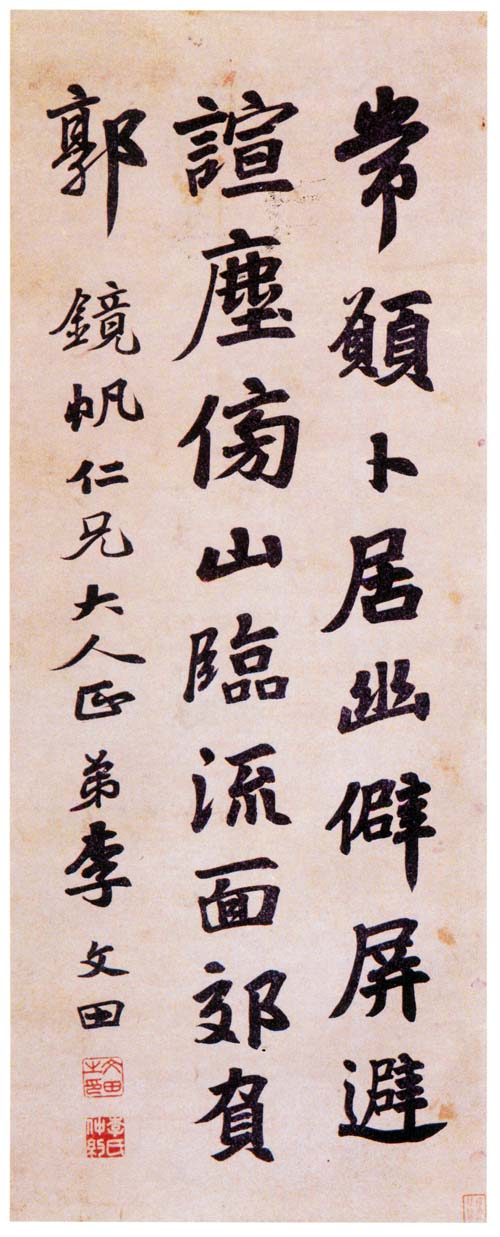 常願卜居幽僻屏避
諠塵傍山臨流面郊負
郭
鏡帆仁兄大人正 弟李文田
文田之印
李氏仲約